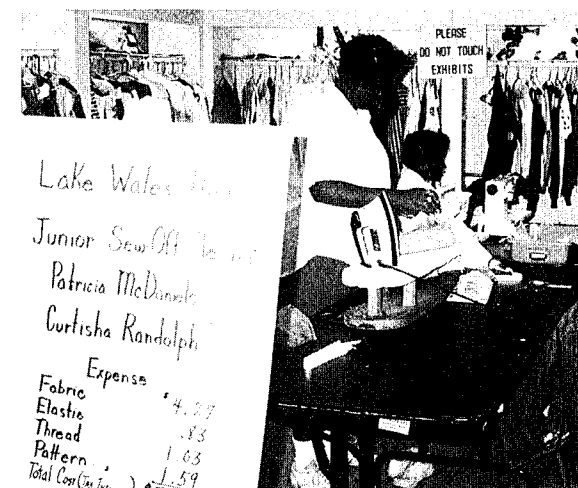 PLEASE
DO NOT TOUCH
EXHIBITS
Lake Wales
Junior Sew-Off
Patricia McDaniels
Curtisha Randolph
Expense
Fabric $4.27
Elastic .83
Thread 1.03
Pattern 1.59
Total Cost